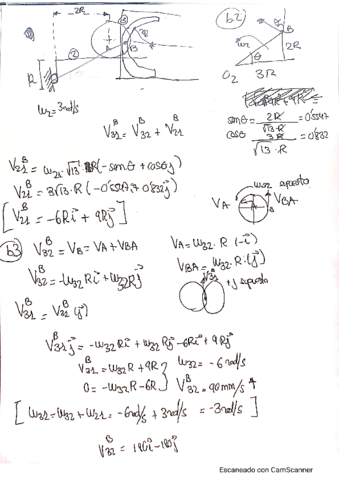 2R
b2
③
②
B
B
ω₂ᵣ
2R
R
θ
O₂ 3R
ω₂ = 3rad/s
V₃₁ᴮ = V₃₂ᴮ + V₂₁ᴮ
senθ = 2R / √13·R = 0'5547
cosθ = 3R / √13·R = 0'832
V₂₁ᴮ = ω₂₁·√13·R(-senθ + cosθj)
V₂₁ᴮ = 3√13·R(-0'5547i + 0'832j)
[V₂₁ᴮ = -6Ri + 9Rj]
ω₃₂ supuesto
VA VBA
b3 V₃₂ᴮ = VB = VA + VBA
VA = ω₃₂·R(-i)
VBA = ω₃₂·R·(j)
V₃₂ᴮ = -ω₃₂Ri + ω₃₂Rj
V₃₁ᴮ
+j supuesto
V₃₁ᴮ = V₃₁ᴮ(j)
V₃₁ᴮj = -ω₃₂Ri + ω₃₂Rj - 6Ri + 9Rj
V₃₁ᴮ = ω₃₂R + 9R ω₃₂ = -6rad/s
0 = -ω₃₂R - 6R V₃₁ᴮ = 90mm/s ↑
[ω₃₁ = ω₃₂ + ω₂₁ = -6rad/s + 3rad/s = -3rad/s]
V₃₂ᴮ = 180i - 180j
Escaneado con CamScanner